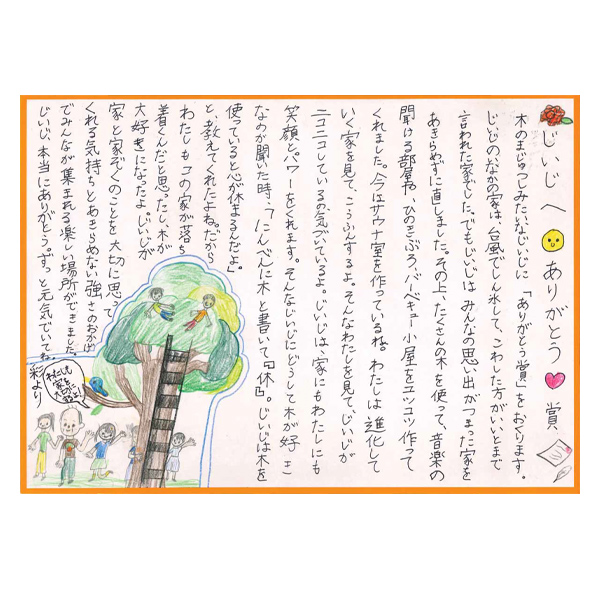 じいじへ ありがとう 賞
木のまじゅつしみたいなじいじに「ありがとう賞」をおくります。
じいじのいなかの家は、台風でしん水して、こわした方がいいとまで
言われた家でした。でもじいじは みんなの思い出がつまった家を
あきらめずに直しました。その上、たくさんの木を使って、音楽の
聞ける部屋や、ひのきぶろ、バーベキュー小屋をコツコツ作って
くれました。今はサウナ室を作っているね。わたしは 進化して
いく家を見て、こうふんするよ。そんなわたしを見て、じいじが
ニコニコしているの気づいているよ。じいじは、家にもわたしにも
笑顔とパワーをくれます。そんなじいじにどうして木が好き
なのか聞いた時、「にんべんに木と書いて『休』。じいじは木を
使っていると心が休まるんだよ。」
と、教えてくれたよね。だから
わたしもコの家が落ち
着くんだと思ったし、木が
大好きになったよ。じいじが
家と家ぞくのことを大切に思って
くれる気持ちとあきらめない強さのおかげ
でみんなが集まれる楽しい場所ができました。
じいじ、本当にありがとう。ずっと元気でいてね。
彩より
わたしも
家を
大切に
するよ!